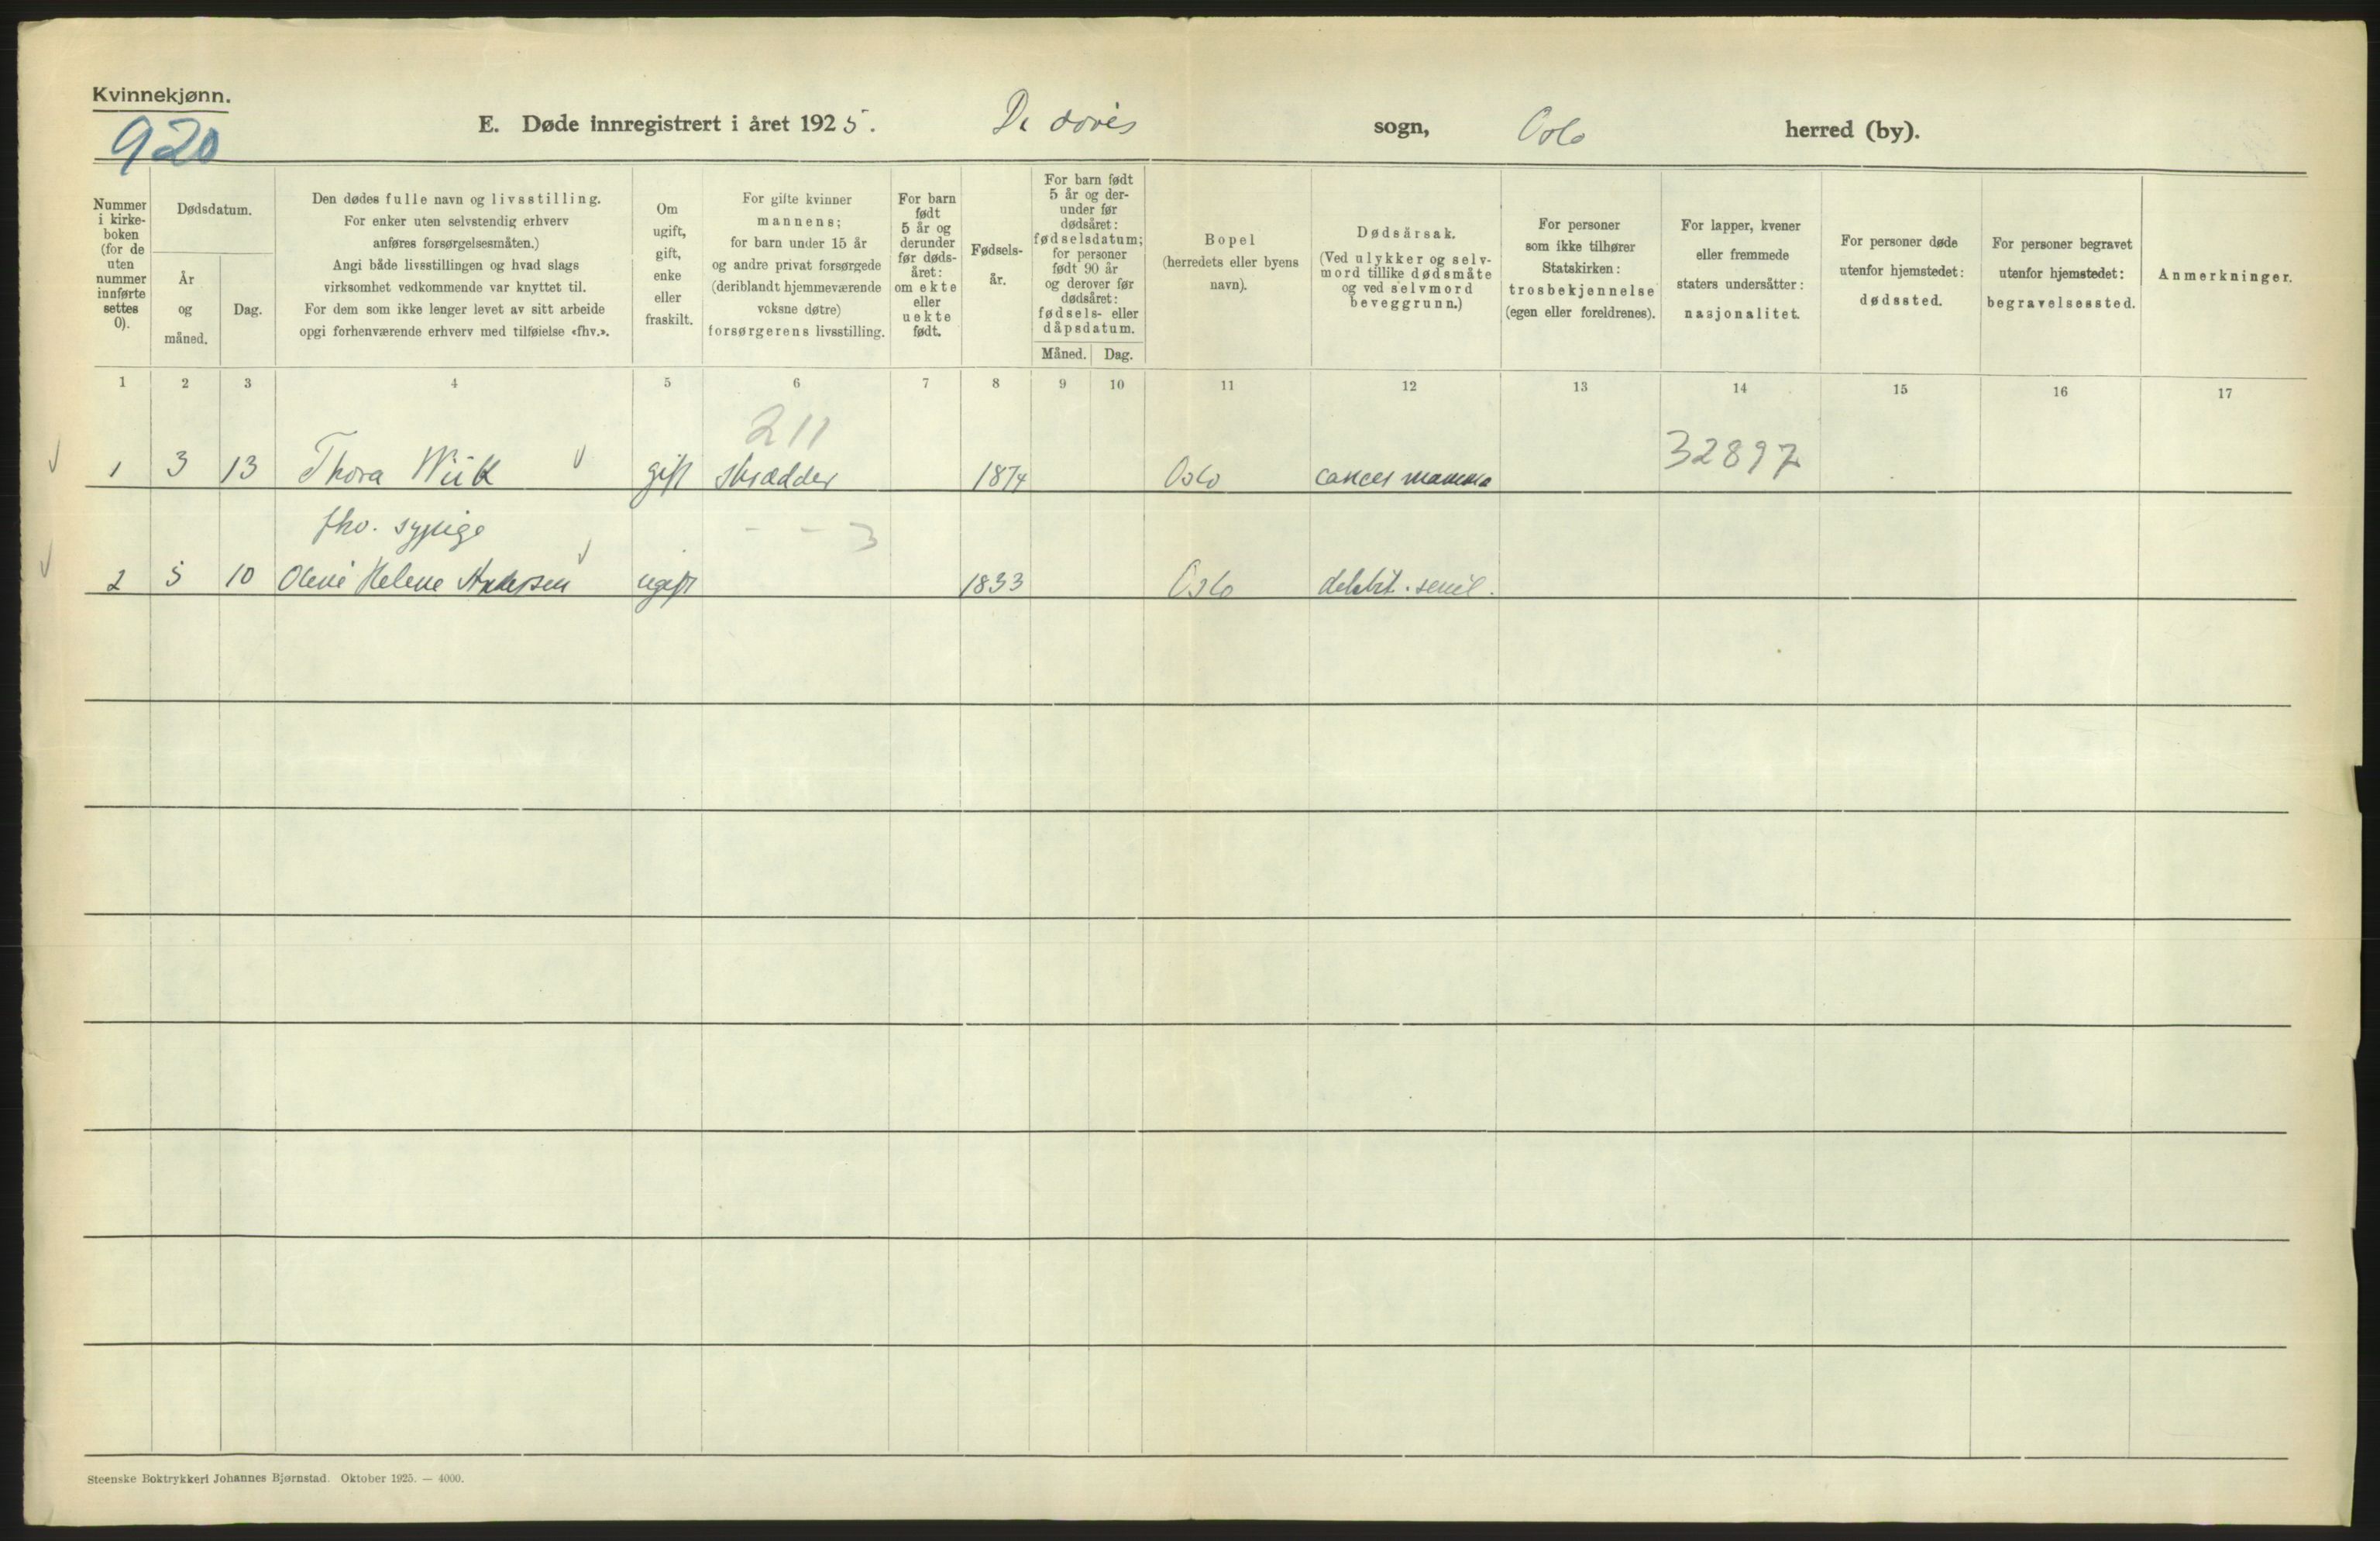 Kvinnekjønn.
920
E. Døde innregistrert i året 1925. De døves sogn, Oslo herred (by).
Nummer i kirke- boken (for de uten nummer innførte settes 0).
Dødsdatum.
År og måned.
Dag.
Den dødes fulle navn og livsstilling.
For enker uten selvstendig erhverv
anføres forsørgelsesmåten.)
Angi både livsstillingen og hvad slags
virksomhet vedkommende var knyttet til.
For dem som ikke lenger levet av sitt arbeide
opgi forhenværende erhverv med tilføielse «fhv.».
Om
ugift,
gift,
enke
eller
fraskilt.
For gifte kvinner
mannens;
for barn under 15 år
og andre privat forsørgede
(deriblandt hjemmeværende
voksne døtre)
forsørgerens livsstilling.
For barn
født
5 år og
derunder
før døds-
året:
om ekte
eller
uekte
født.
Fødsels-
år.
For barn født
5 år og der-
under før
dødsåret:
fødselsdatum;
for personer
født 90 år
og derover før
dødsåret:
fødsels- eller
dåpsdatum.
Måned. Dag.
Bopel
(herredets eller byens
navn).
Dødsårsak.
(Ved ulykker og selv-
mord tillike dødsmåte
og ved selvmord
beveggrunn.)
For personer
som ikke tilhører
Statskirken:
trosbekjennelse
(egen eller foreldrenes).
For lapper, kvener
eller fremmede
staters undersåtter:
nasjonalitet.
For personer døde
utenfor hjemstedet:
dødssted.
For personer begravet
utenfor hjemstedet:
begravelsessted.
Anmerkninger.
1 2 3 4 5 6 7 8 9 10 11 12 13 14 15 16 17
211
1 3 13 Thora Wiik gift skrædder 1874 Oslo cancer mamma 32897
fhv. sypige - - 3
2 5 10 Oline Helene Andersen ugift 1833 Oslo debilit. senil.
Steenske Boktrykkeri Johannes Bjørnstad. Oktober 1925. — 4000.